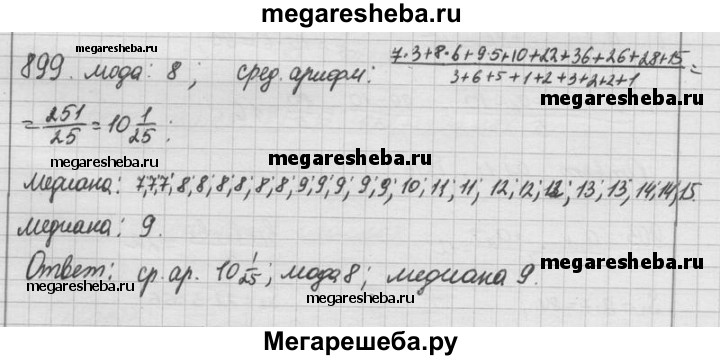 megaresheba.ru
899. мода: 8; сред. арифм: 7·3+8·6+9·5+10+22+36+26+28+15 / 3+6+5+1+2+3+2+2+1 =
megaresheba.ru
megaresheba.ru
= 251/25 = 10 1/25;
megaresheba.ru
megaresheba.ru
медиана: 7,7,7; 8;8;8;8;8;8;9;9;9;9;9; 10; 11; 11; 12; 12; 12; 13; 13; 14; 14; 15.
медиана: 9.
Ответ: ср. ар. 10 1/25; мода 8; медиана 9.
megaresheba.ru
megaresheba.ru
megaresheba.ru
Мегарешеба.ру